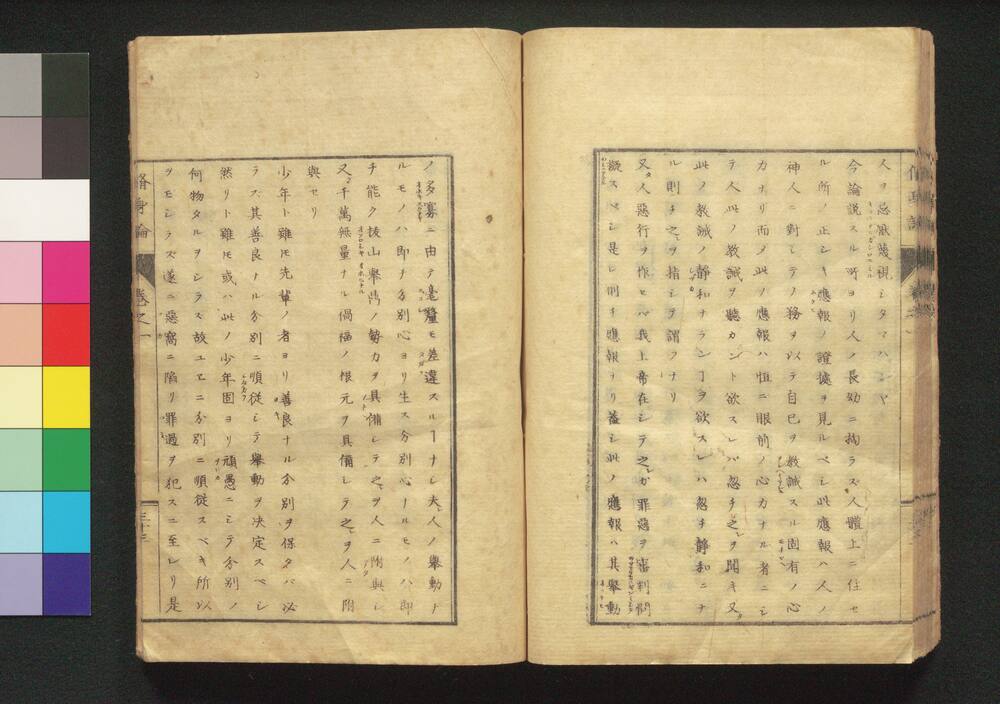 人ヲ忌厭蔑視シタマハンヤ
今論説スル所ヨリ人ノ長幼ニ拘ラス人體上ニ住セ
ル所ノ正シキ應報ノ證據ヲ見ルベシ此應報ハ人ノ
神人ニ對シテノ務ヲ以テ自己ヲ教誡スル固有ノ心
力ナリ而メ此ノ應報ハ恒ニ眼前ノ心力ナル者ニシ
テ人此ノ教誡ヲ聽カント欲スレバ忽チ之ヲ聞キ又
此ノ教誡ノ靜和ナランヿヲ欲スレハ忽チ靜和ニナ
ル則チ之ヲ指シテ謂フナリ
又人惡行ヲ作セハ我上帝在シテ之ガ罪惡ヲ審判問
擬スベシ是レ則チ應報ナリ蓋シ此ノ應報ハ其舉動
ノ多寡ニ由テ毫釐モ差違スルヿナシ夫人ノ舉動ナ
ルモノハ即ナ分別心ヨリ生ス分別心ナルモノハ即
チ能ク拔山舉鼎ノ勢力ヲ具備シテ之ヲ人ニ附與シ
又千萬無量ナル禍福ノ根元ヲ具備シテ之ヲ人ニ附
與セリ
少年ト雖𪜈先輩ノ者ヨリ善良ナル分別ヲ保タバ必
ラス其善良ナル分別ニ順從シテ舉動ヲ決定スベシ
然リト雖𪜈或ハ此ノ少年固ヨリ頑愚ニシテ分別ノ
何物タルヲシラス故ユエニ分別ニ順從スベキ所以
ヲモシラス遂ニ惡窩ニ陷リ罪過ヲ犯スニ至レリ是
脩身論
卷之一
三十三